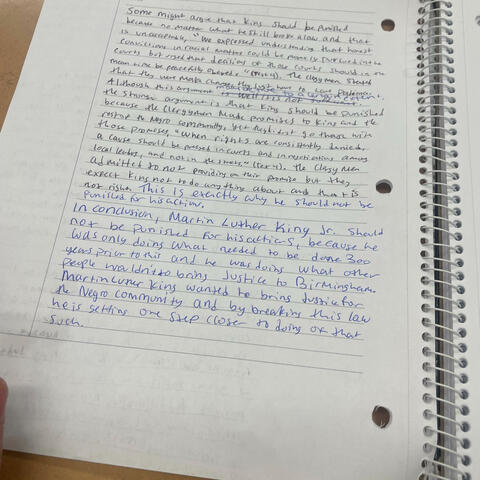 Some might argue that King should be punished
because no matter what he still broke a law and that
is unacceptable, "We expressed understanding that honest
convictions in racial matters could be properly pursued in the
courts but urged that decisions of those courts should in the
mean time be peacefully obeyed" (Text 4). The clergymen
that they were
Although this argument is well it is not
the stronger argument is that King should be punished
because the Clergymen made promises to King and the
rest of the Negro community, yet they didnt go through with
those promises, "When rights are consistently denied,
a cause should be pressed in courts and in negotiations among
local leaders, and not in the streets," (Text 4). The Clergy men
admitted to not providing on their promise but they
expect King not to do anything about and that is
not right. This is exactly why he should not be
punished for his action.
In conclusion, Martin Luther King Jr. should
not be punished for his actions, because he
was only doing what needed to be done 300
years prior to this and he was doing what other
people wouldn't to bring Justice to Birmingham.
Martin Luther King wanted to bring Justice for
the Negro community and by breaking this law
he is getting one step closer to doing of that
such.